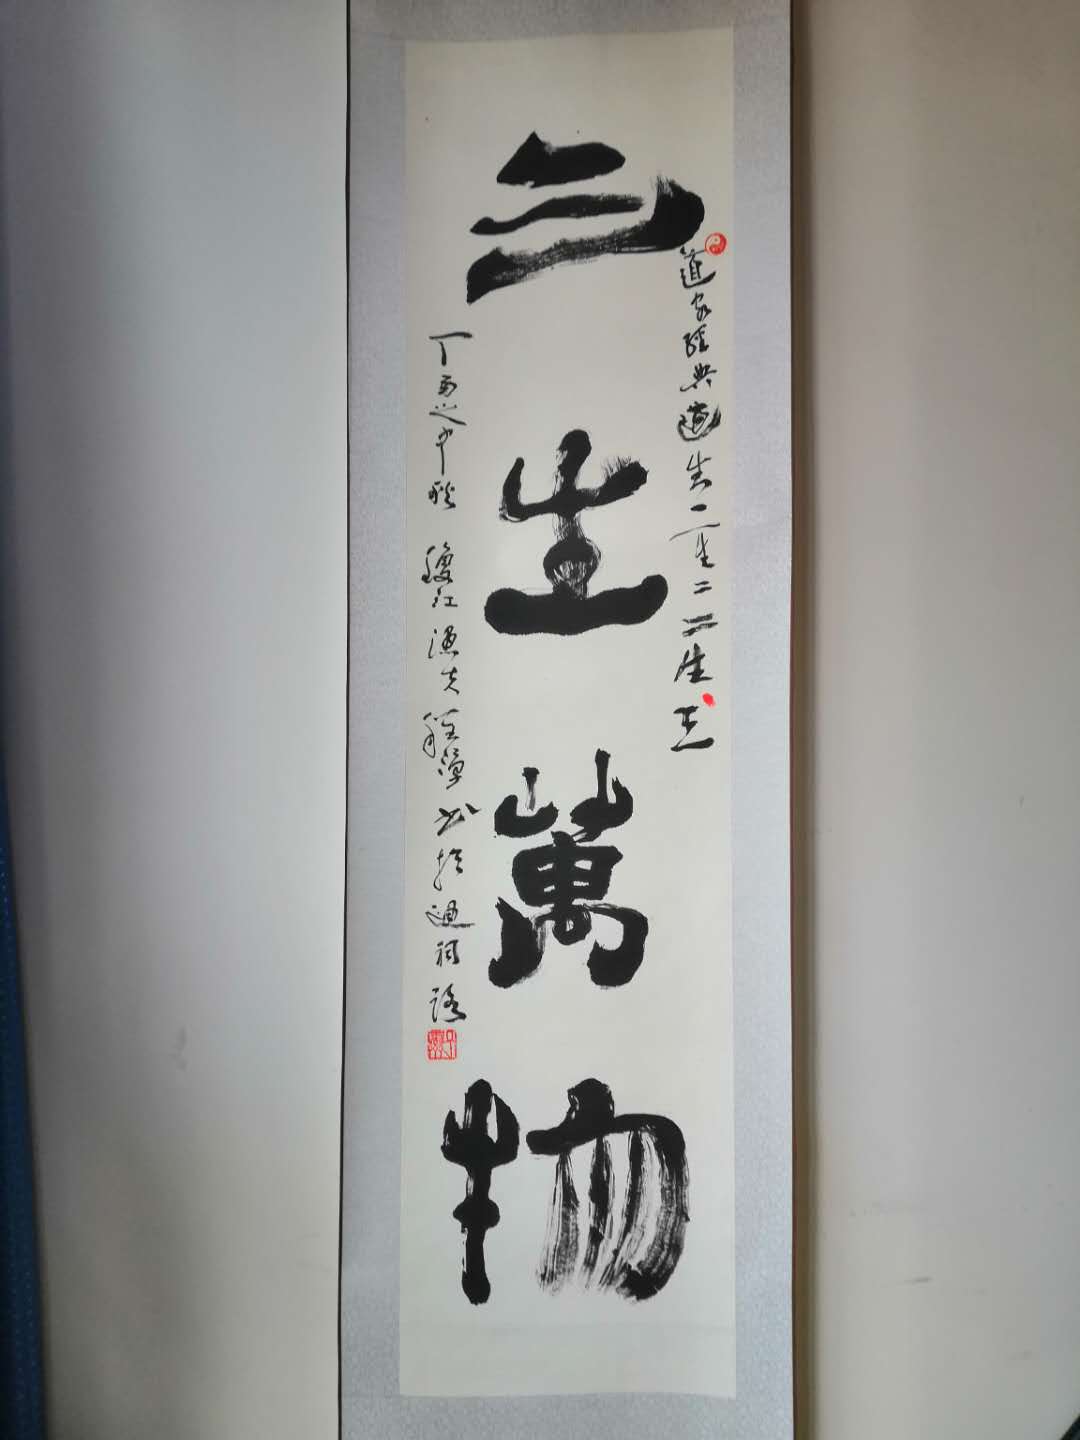 三生萬物
道家經典道生一一生二二生三
丁酉之中秋 瓊江漁夫 程潭 書於迴祠路